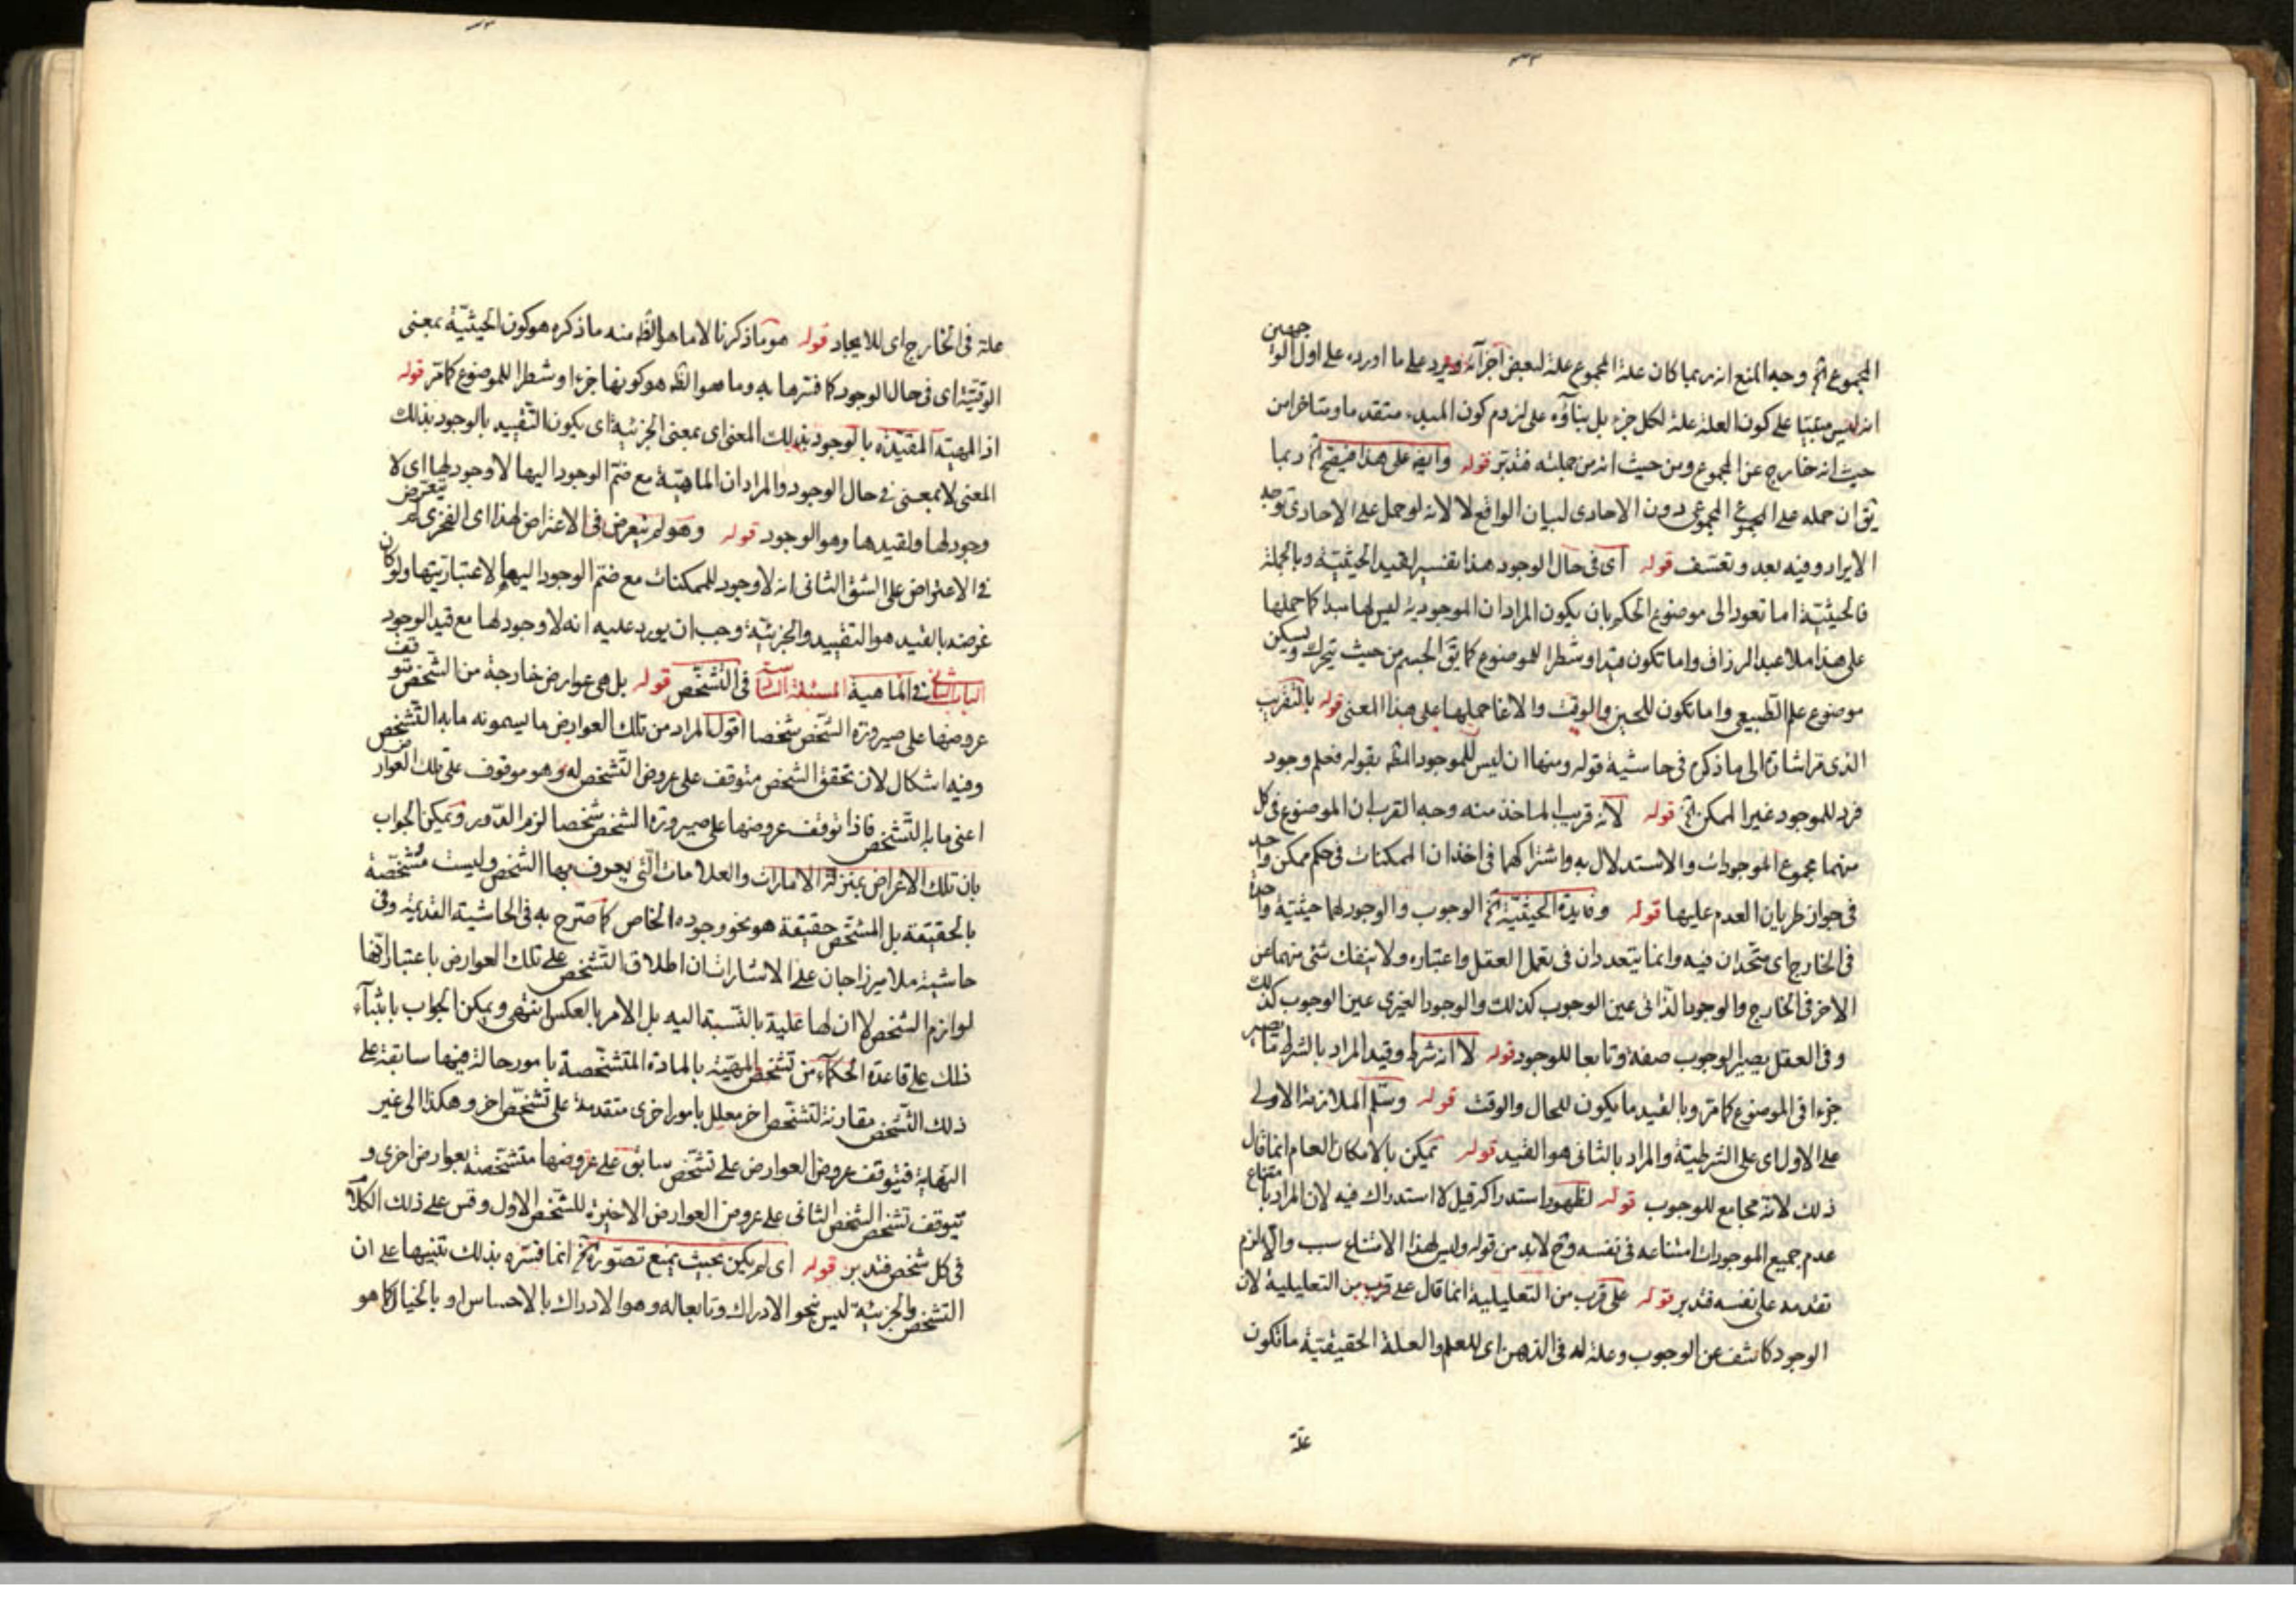 المجموع الخ وجه المنع انه ربما كان علة المجموع علة لبعض اجزآئه ويرد على ما اورده على اول الوا جهين
انه ليس مبتنيا على كون العلة علة لكل جزء بل بناؤه على لزوم كون المبدء متقدما ومتاخرا من
حيث انه خارج عن المجموع ومن حيث انه من جملته فتدبر قوله وابقه على هذا فيقبح الخ ربما
يق ان حمله على المجموعى دون الاحادى لبيان الواقع لا لانه لو حمل على الاحادى توجه
الايراد وفيه بعد وتعسف قوله اى فى حال الوجود هذا تفسير لقيد الحيثية وبالجملة
فالحيثية اما تعود الى موضوع الحكم بان يكون المراد ان الموجودية ليس لها مبدا كما حملها
على هذا ملا عبد الرزاق واما تكون قيدا وشطرا للموضوع كما يق الجسم من حيث يتحرك ويسكن
موضوع علم الطبيعى واما تكون للحين والوقت والاغا حملها على هذا المعنى قوله بالتقريب
الذى مر اشارة الى ما ذكره فى حاشية قوله ومنها ان ليس للموجود المط بقوله فعلم وجود
فرد للموجود غير الممكن الخ قوله لانه قريب الماخذ منه وجه القرب ان الموضوع فى كل
منهما مجموع الموجودات والاستدلال به واشتراكهما فى اخذ ان الممكنات فى حكم ممكن واحد
فى جواز طريان العدم عليها قوله وفايدة الحيثية الخ الوجوب والوجود لهما حيثية واحدة
فى الخارج اى متحدان فيه وانما يتعددان فى تعمل العقل واعتباره ولا ينفك شئ منهما عن
الاخر فى الخارج والوجود الذاتى عين الوجوب كذلك والوجود الغيرى عين الوجوب كذلك
وفى العقل يصير الوجوب صفة وتابعا للوجود قوله لا انه شرط وقيد المراد بالشرط ما يصير
جزءا فى الموضوع كما مر وبالقيد ما يكون للحال والوقت قوله وسلم الملازمة الاولى
على الاول اى على الشرطية والمراد بالثانى هو القيد قوله ممكن بالامكان العام انما قال
ذلك لانه مجامع للوجوب قوله لظهور استدراكه قيل لا استدراك فيه لان المراد بامتناع
عدم جميع الموجودات امتناعه فى نفسه وح لابد من قوله وليس لهذا الامتناع سبب والا لزم
تقدمه على نفسه فتدبر قوله على قرب من التعليلية انما قال على قرب من التعليلية لان
الوجود كاشف عن الوجوب وعلة له فى الذهن اى للعلم والعلة الحقيقية ما تكون
علة
علة فى الخارج اى للايجاد قوله هو ما ذكرنا لا ما هو الظ منه ما ذكره هو كون الحيثية بمعنى
الوقتية اى فى حال الوجود كما فسرها به وما هو الظ هو كونها جزءا وشطرا للموضوع كما مر قوله
اذ المهية المقيدة بالوجود بذلك المعنى اى بمعنى الجزئية اى يكون التقييد بالوجود بذلك
المعنى لا بمعنى فى حال الوجود والمراد ان الماهية مع ضم الوجود اليها لا وجود لها اى لا
وجود لها ولقيدها وهو الوجود قوله وهو لم يتعرض فى الاعتراض لهذا اى الفخرى لم يتعرض
فى الاعتراض على الشق الثانى انه لا وجود للممكنات مع ضم الوجود اليها لاعتباريتها ولو كان
غرضه بالقيد هو التقييد والجزئية وجب ان يورد عليه انه لا وجود لها مع قيد الوجود
الباب الثانى فى الماهية المسئلة السادسة فى التشخص قوله بل هى عوارض خارجة من الشخص تتوقف
عروضها على صيرورة الشخص شخصا اقول المراد من تلك العوارض ما يسمونه ما به التشخص
وفيه اشكال لان تحقق الشخص متوقف على عروض التشخص له وهو موقوف على تلك العوارض
اعنى ما به التشخص فاذا توقف عروضها على صيرورة الشخص شخصا لزم الدور ويمكن الجواب
بان تلك الاعراض بمنزلة الامارات والعلامات التى يعرف بها الشخص وليست مشخصة
بالحقيقة بل المشخص حقيقة هو نحو وجوده الخاص كما صرح به فى الحاشية القديمة وفى
حاشية ملا ميرزا جان على الاشارات ان اطلاق التشخص على تلك العوارض باعتبار انها
لوازم الشخص لا ان لها علية بالنسبة اليه بل الامر بالعكس انتهى ويمكن الجواب بابتناء
ذلك على قاعدة الحكماء من تشخص المهية بالمادة المتشخصة بامور حالة فيها سابقة على
ذلك التشخص مقارنة لتشخص اخر معلل بامور اخرى متقدمة على تشخص اخر وهكذا الى غير
النهاية فيتوقف عروض العوارض على تشخص سابق على عروضها متشخصة بعوارض اخرى و
يتوقف تشخص الشخص الثانى على عروض العوارض الاخيرة للشخص الاول وقس على ذلك الكلام
فى كل شخص فتدبر قوله اى لم يكن بحيث يمنع تصوره الخ انما فسره بذلك تنبيها على ان
التشخص والجزئية ليس نحو الادراك وتابعا له وهو الادراك بالاحساس او بالخيال كما هو